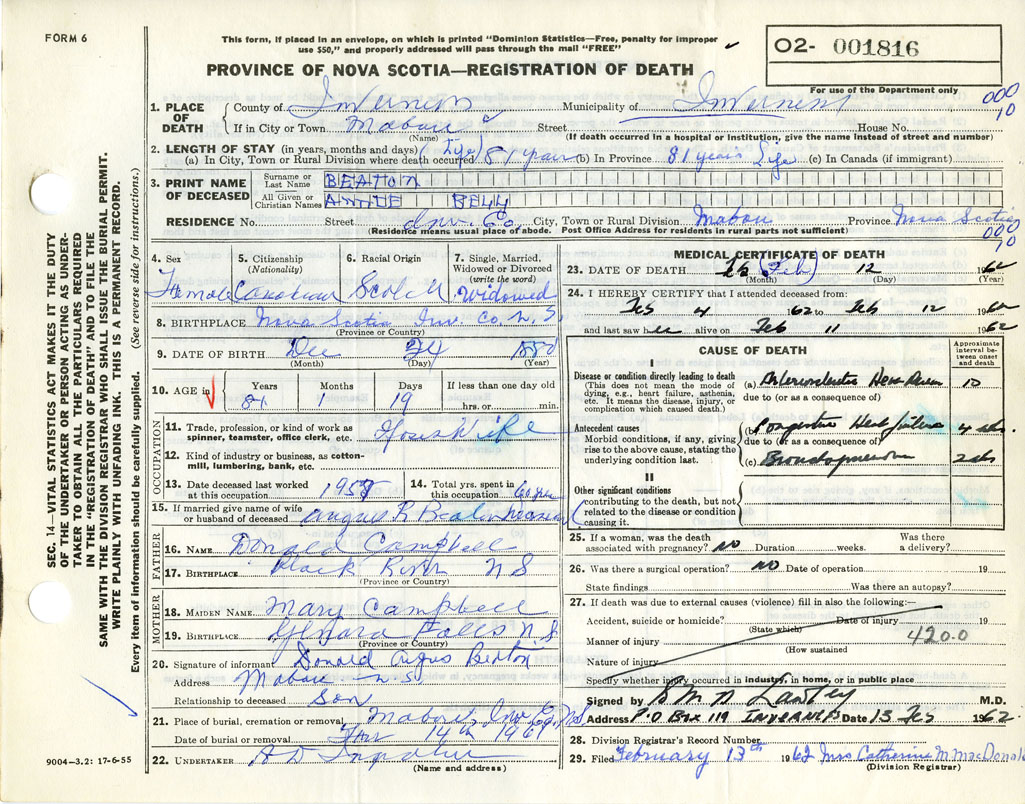 FORM 6
This form, if placed in an envelope, on which is printed "Dominion Statistics—Free, penalty for improper
use $50," and properly addressed will pass through the mail "FREE"
O2- 001816
PROVINCE OF NOVA SCOTIA—REGISTRATION OF DEATH
For use of the Department only
000
10
1. PLACE OF DEATH County of Inverness Municipality of Inverness
If in City or Town Mabou Street House No.
(Name) (If death occurred in a hospital or institution, give the name instead of street and number)
2. LENGTH OF STAY (in years, months and days) (Life)
(a) In City, Town or Rural Division where death occurred 81 years (b) In Province 81 years Life (c) In Canada (if immigrant)
3. PRINT NAME OF DECEASED
Surname or Last Name BEATON
All Given or Christian Names ANNIE BELL
RESIDENCE No. Street Inv. Co. City, Town or Rural Division Mabou Province Nova Scotia
(Residence means usual place of abode. Post Office Address for residents in rural parts not sufficient)
000
10
SEC. 14—VITAL STATISTICS ACT MAKES IT THE DUTY
OF THE UNDERTAKER OR PERSON ACTING AS UNDER-
TAKER TO OBTAIN ALL THE PARTICULARS REQUIRED
IN THE "REGISTRATION OF DEATH" AND TO FILE THE
SAME WITH THE DIVISION REGISTRAR WHO SHALL ISSUE THE BURIAL PERMIT.
WRITE PLAINLY WITH UNFADING INK. THIS IS A PERMANENT RECORD.
Every item of information should be carefully supplied. (See reverse side for instructions.)
4. Sex 5. Citizenship (Nationality) 6. Racial Origin 7. Single, Married, Widowed or Divorced (write the word)
Female Canadian Scotch Widowed
8. BIRTHPLACE Nova Scotia Inv. Co. N.S.
(Province or Country)
9. DATE OF BIRTH Dec 24 1880
(Month) (Day) (Year)
10. AGE in Years Months Days If less than one day old
81 19 hrs. or min.
OCCUPATION
11. Trade, profession, or kind of work as
spinner, teamster, office clerk, etc. Housewife
12. Kind of industry or business, as cotton-
mill, lumbering, bank, etc.
13. Date deceased last worked
at this occupation 1958
14. Total yrs. spent in
this occupation
15. If married give name of wife
or husband of deceased Angus R Beaton
FATHER
16. NAME Donald Campbell
17. BIRTHPLACE Black River N S
(Province or Country)
MOTHER
18. MAIDEN NAME Mary Campbell
19. BIRTHPLACE Falls N S
(Province or Country)
20. Signature of informant Donald Angus Beaton
Address Mabou N.S.
Relationship to deceased Son
21. Place of burial, cremation or removal Mabou, Inv Co, N.S.
Date of burial or removal 14th 196
22. UNDERTAKER A D
(Name and address)
9004—3.2: 17-6-55
MEDICAL CERTIFICATE OF DEATH
23. DATE OF DEATH Feb (Feb) 12 1962
(Month) (Day) (Year)
24. I HEREBY CERTIFY that I attended deceased from:
Feb 4 1962 to Feb 12 1962
and last saw her alive on Feb 11 1962
CAUSE OF DEATH
Approximate interval between onset and death
I
Disease or condition directly leading to death
(This does not mean the mode of
dying, e.g., heart failure, asthenia,
etc. It means the disease, injury, or
complication which caused death.)
(a) Arteriosclerotic Heart Disease 10
due to (or as a consequence of)
Antecedent causes
Morbid conditions, if any, giving
rise to the above cause, stating the
underlying condition last.
(b) Congestive Heart failure 4
due to (or as a consequence of)
(c) Bronchopneumonia 2
II
Other significant conditions
contributing to the death, but not
related to the disease or condition
causing it.
25. If a woman, was the death
associated with pregnancy? NO Duration weeks. Was there a delivery?
26. Was there a surgical operation? NO Date of operation 19
State findings Was there an autopsy?
27. If death was due to external causes (violence) fill in also the following:—
Accident, suicide or homicide? Date of injury 19
(State which)
Manner of injury 420.0
(How sustained)
Nature of injury
Specify whether injury occurred in industry, in home, or in public place
Signed by M.D.
Address P.O Box 119 INVERNESS Date 13 Feb 1962
28. Division Registrar's Record Number
29. Filed February 13th 1962 Mrs Catherine M. MacDonald
(Division Registrar)